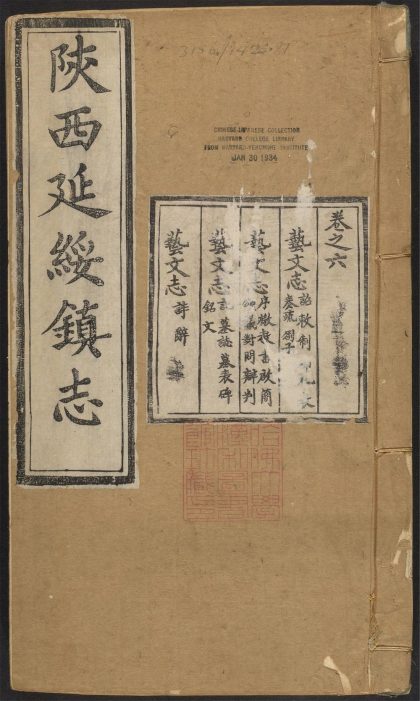 陝西延綏鎮志
CHINESE-JAPANESE COLLECTION
HARVARD COLLEGE LIBRARY
FROM HARVARD-YENCHING INSTITUTE
JAN 30 1934
卷之六
藝文志 詔 敕 制
奏疏 劄子
藝文志 序 檄 書 啟 簡
議 對問 辯 判
藝文志 記 墓誌 墓表 碑
銘 文
藝文志 詩 辭